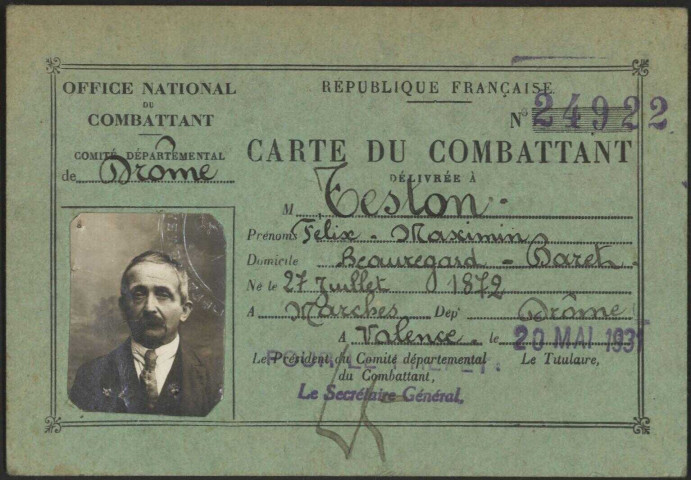 OFFICE NATIONAL
DU
COMBATTANT
COMITÉ DÉPARTEMENTAL
de Drôme
RÉPUBLIQUE FRANÇAISE
N° 24922
CARTE DU COMBATTANT
DÉLIVRÉE À
M Teston
Prénoms Félix - Maximin
Domicile Beauregard - Baret
Né le 27 Juillet 1872
A Marches Dept Drôme
A Valence le 20 MAI 1931
Le Président du Comité départemental Le Titulaire,
POUR LE
du Combattant,
Le Secrétaire Général,